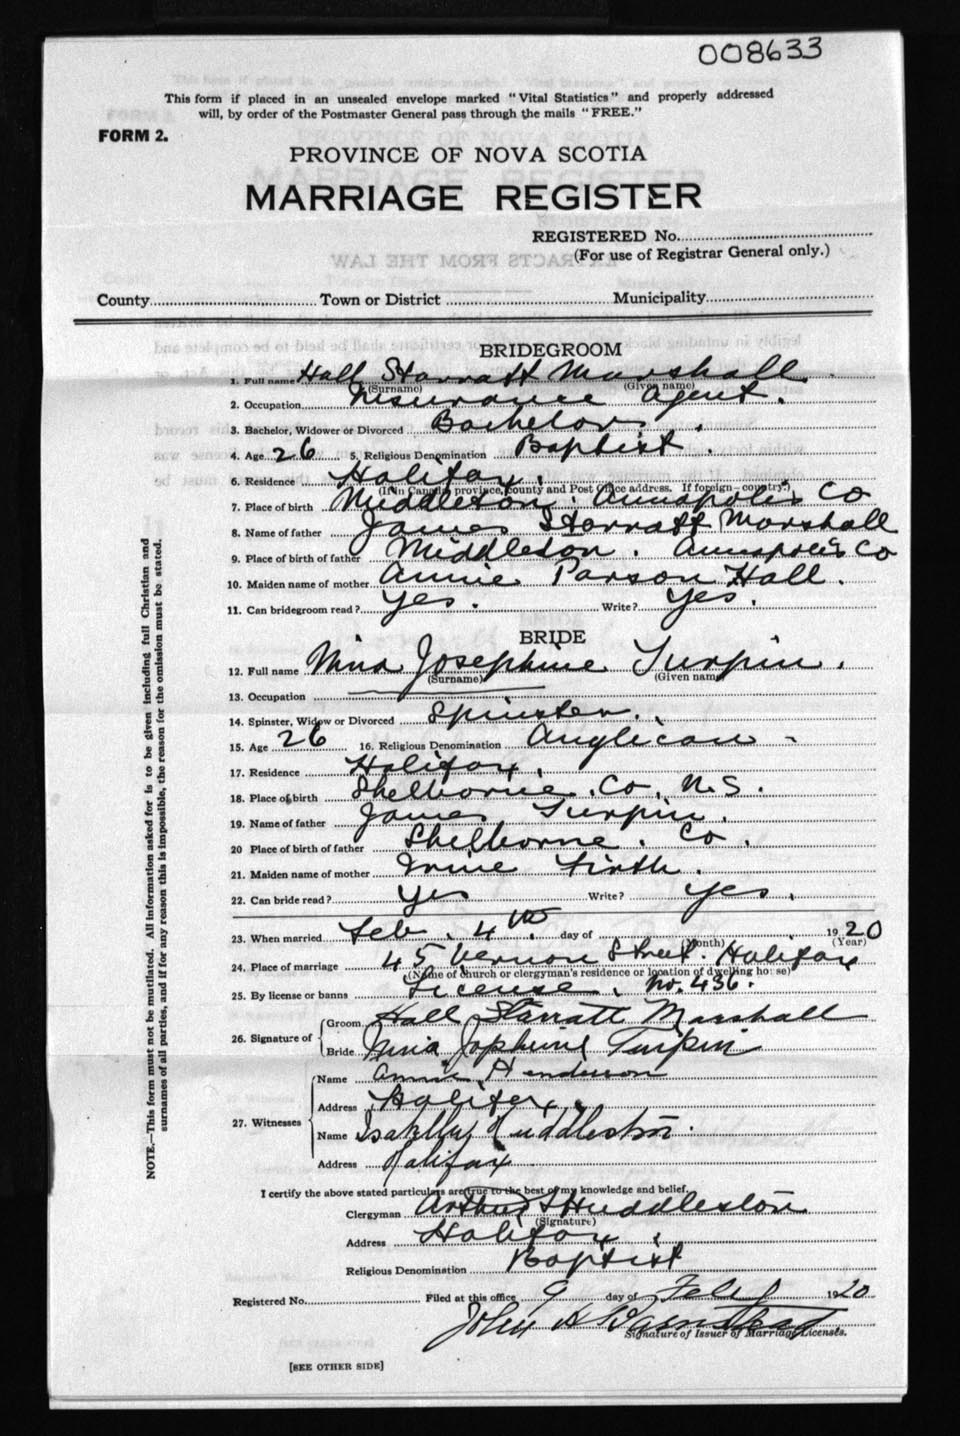 008633
This form if placed in an unsealed envelope marked "Vital Statistics" and properly addressed
will, by order of the Postmaster General pass through the mails "FREE."
FORM 2.
PROVINCE OF NOVA SCOTIA
MARRIAGE REGISTER
REGISTERED No.
(For use of Registrar General only.)
County Town or District Municipality
BRIDEGROOM
1. Full name Hall Starratt Marshall
(Surname) (Given name)
2. Occupation Insurance Agent.
3. Bachelor, Widower or Divorced Bachelor.
4. Age 26 5. Religious Denomination Baptist.
6. Residence Halifax.
(If in Canada, province, county and Post Office address. If foreign—country)
7. Place of birth Middleton. Annapolis Co
8. Name of father James Starratt Marshall
9. Place of birth of father Middleton. Annapolis Co
10. Maiden name of mother Annie Parson Hall.
11. Can bridegroom read? Yes. Write? Yes.
BRIDE
12. Full name Nina Josephine Turpin.
(Surname) (Given name)
13. Occupation
14. Spinster, Widow or Divorced Spinster.
15. Age 26 16. Religious Denomination Anglican -
17. Residence Halifax.
18. Place of birth Shelborne. Co. N.S.
19. Name of father James Turpin.
20 Place of birth of father Shelborne. Co.
21. Maiden name of mother Irine Firth.
22. Can bride read? Yes Write? Yes.
23. When married Feb. 4th. day of 1920
(Month) (Year)
24. Place of marriage 45 Vernon Street. Halifax
(Name of church or clergyman's residence or location of dwelling house)
25. By license or banns License. No. 436.
26. Signature of Groom Hall Starratt Marshall
Bride Nina Josphine Turpin
27. Witnesses Name Annie Henderson
Address Halifax.
Name Isabelle Huddleston.
Address Halifax
I certify the above stated particulars are true to the best of my knowledge and belief.
Clergyman Arthur Huddleston
(Signature)
Address Halifax.
Religious Denomination Baptist
Registered No. Filed at this office 9 day of Feb 1920
John
Signature of Issuer of Marriage Licenses.
[SEE OTHER SIDE]
NOTE.—This form must not be mutilated. All information asked for is to be given including full Christian and
surnames of all parties, and if for any reason this is impossible, the reason for the omission must be stated.